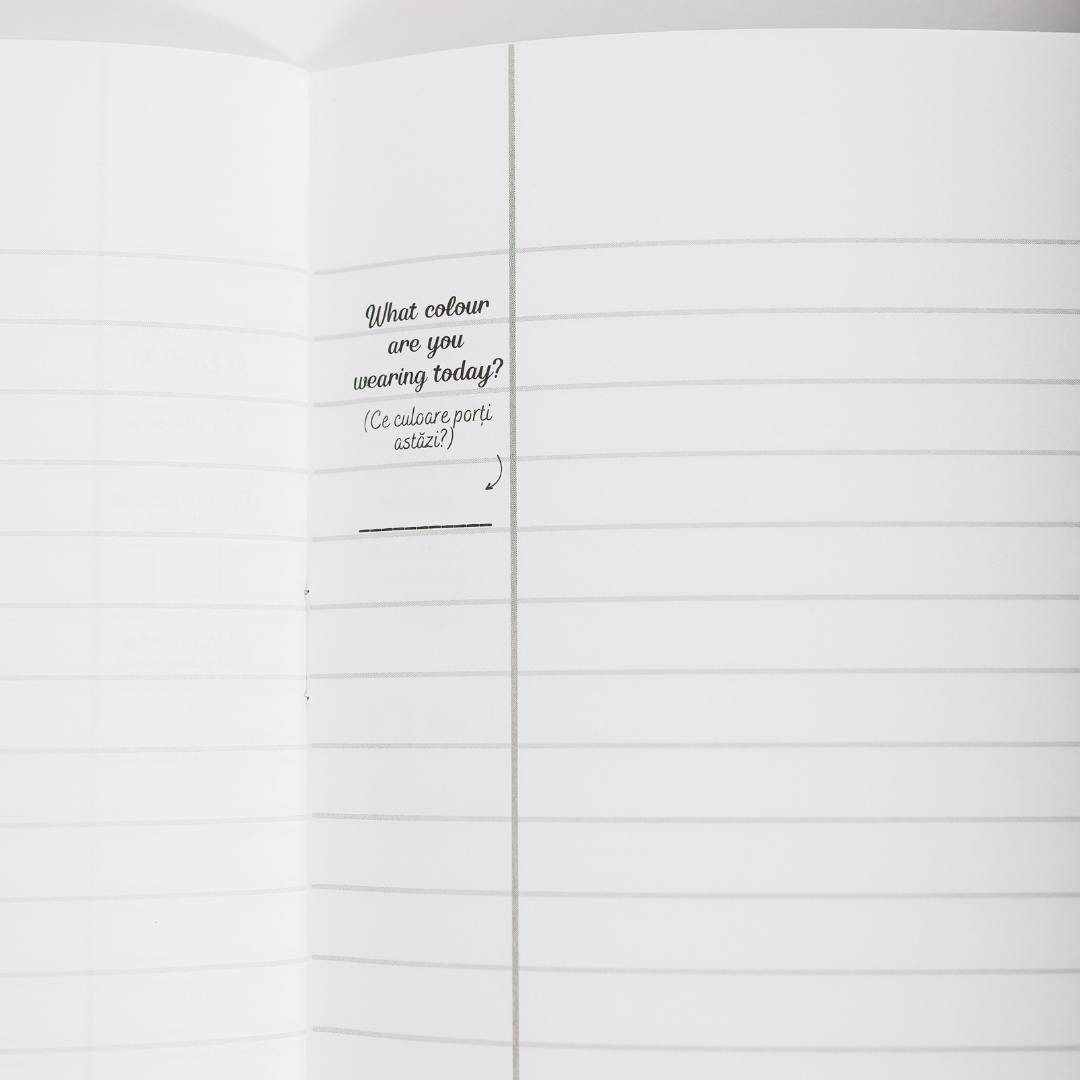 What colour
are you
wearing today?
(Ce culoare porți
astăzi?)